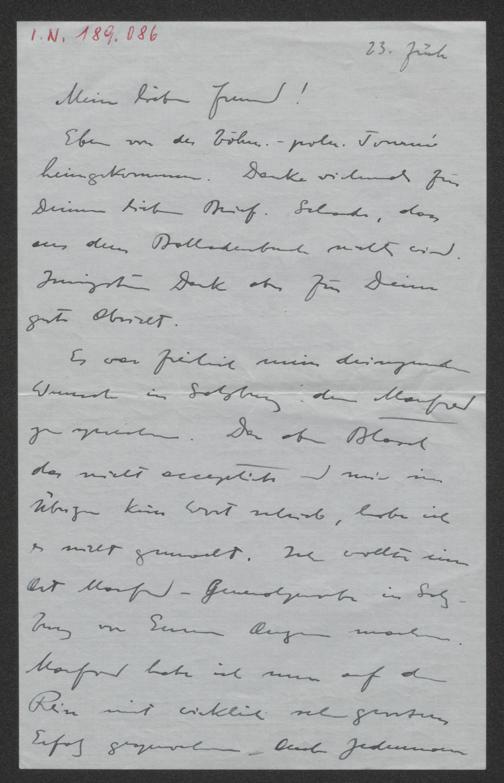 I.N. 189.086
23. Juli
Mein lieber Freund!
Eben von der böhm.-poln. Tournée
heimgekommen. Danke vielmals für
Deinen lieben Brief. Schade, dass
aus dem Balladenbuch nichts wird.
Innigsten Dank aber für Deine
gute Absicht.
Es war freilich mein dringender
Wunsch in Salzburg den Manfred
zu sprechen. Da aber
das nicht acceptirte und mir im
Übrigen kein Wort schrieb, habe ich
es nicht gemacht. Ich wollte eine
Art Manfred-Generalprobe in Salz-
burg vor Euren Augen machen.
Manfred habe ich nun auf der
Reise mit wirklich sehr grossem
Erfolg gesprochen. Auch Jedermann